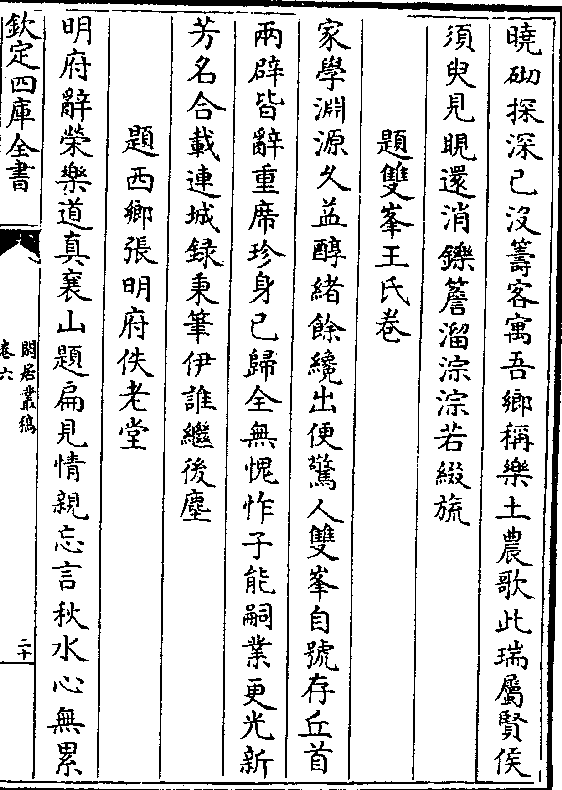 曉砌探深已沒籌客寓吾鄉稱樂土農歌此瑞屬賢侯
須臾見晛還消鑠簷溜淙淙若綴旒
題雙峯王氏卷
家學淵源久益醇緒餘纔出便驚人雙峯自號存丘首
兩辟皆辭重席珍身已歸全無愧怍子能嗣業更光新
芳名合載連城録秉筆伊誰繼後塵
題西鄉張明府佚老堂
明府辭榮樂道真襄山題扁見情親忘言秋水心無累
欽定四庫全書
閒居叢稿
卷六
二十